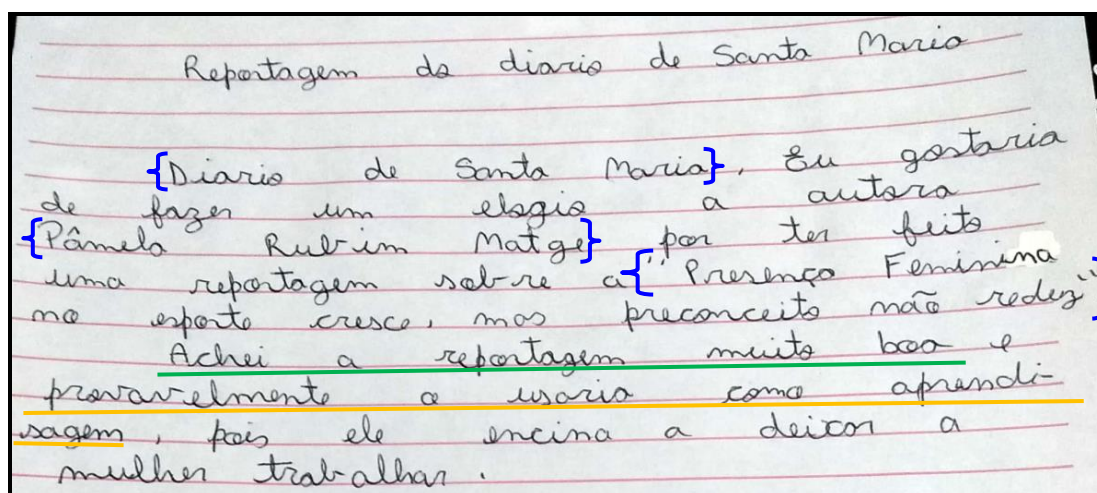 Reportagem do diario de Santa Maria
{Diario de Santa Maria}, Eu gostaria
de fazer um elogio a autora
{Pâmela Rubim Matge} por ter feito
uma reportagem sobre a {"Presença Feminina
no esporte cresce, mas preconceito não redez"}
Achei a reportagem muito boa e
provavelmente a usaria como aprendi-
sagem, pois ele encina a deixar a
mulher trabalhar.